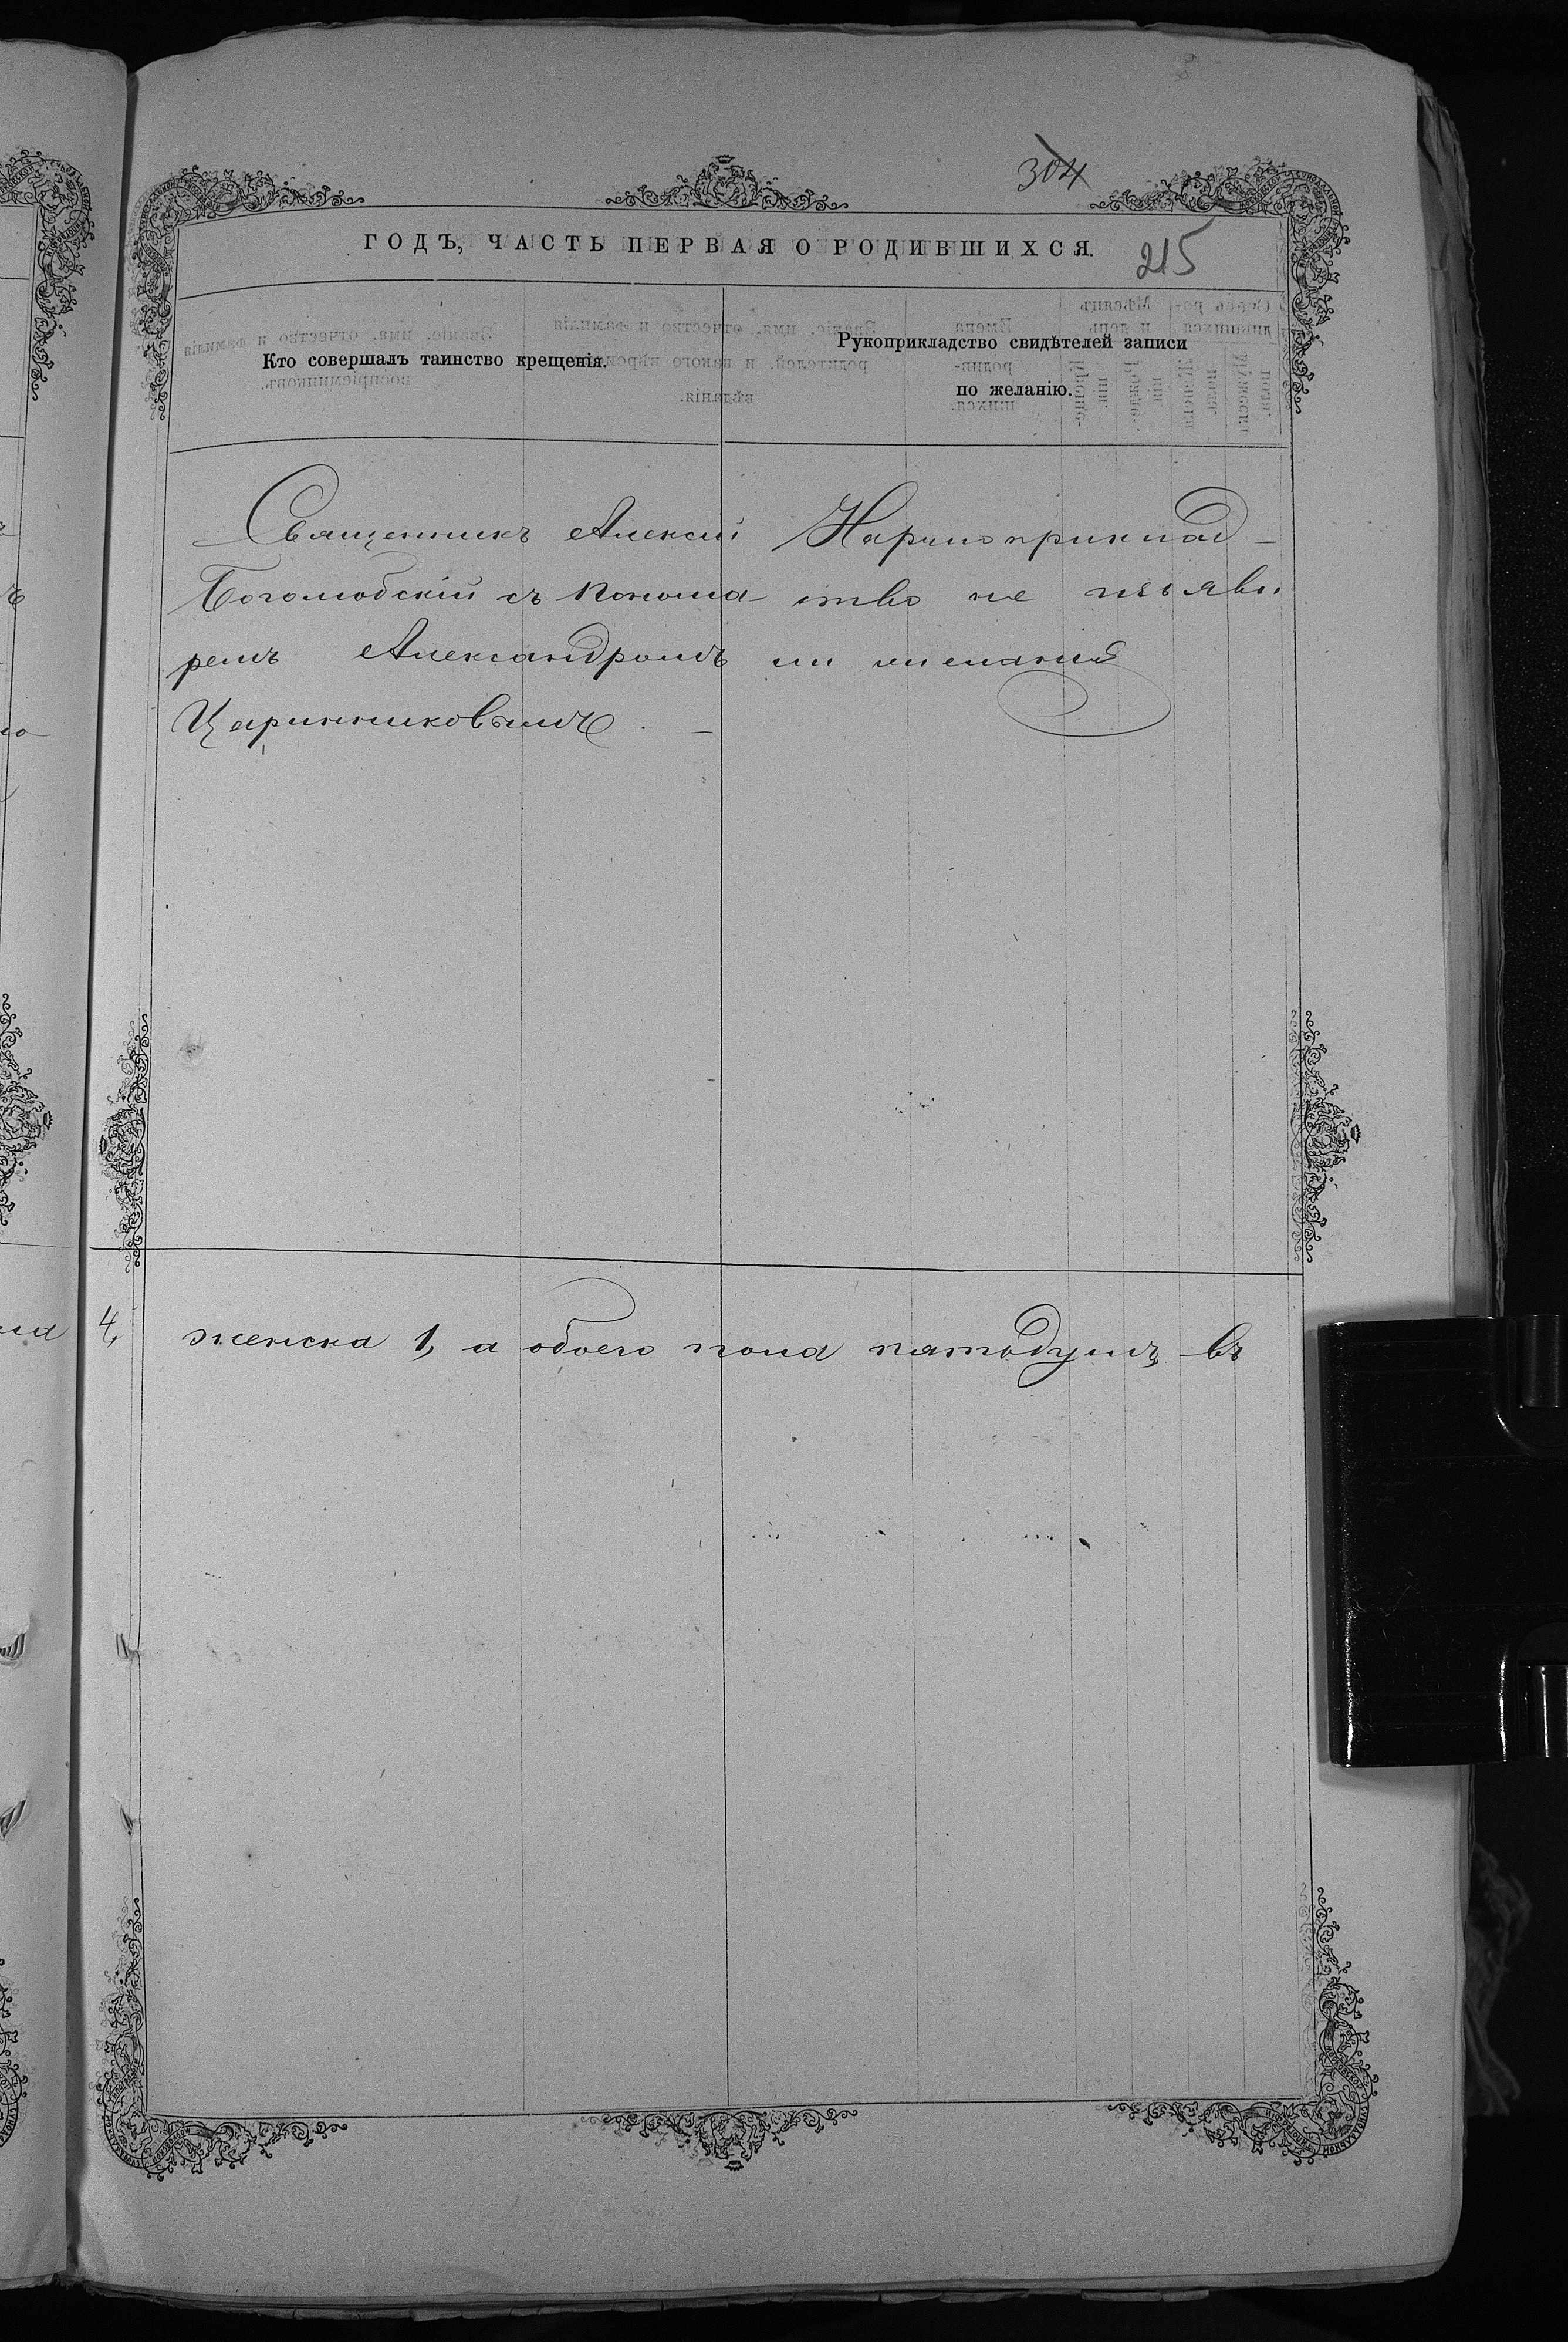 304
ГОДЪ, ЧАСТЬ ПЕРВАЯ О РОДИВШИХСЯ.
215
Кто совершалъ таинство крещенія.
Рукоприкладство свидѣтелей записи
по желанію.
Священникъ Алексій
Боголюбскій съ понома-
ремъ Александромъ
Царинниковымъ. –
На рукоприклад-
ство не изъяви
ли желанія
4,
женска 1, а обоего пола пять душъ – въ